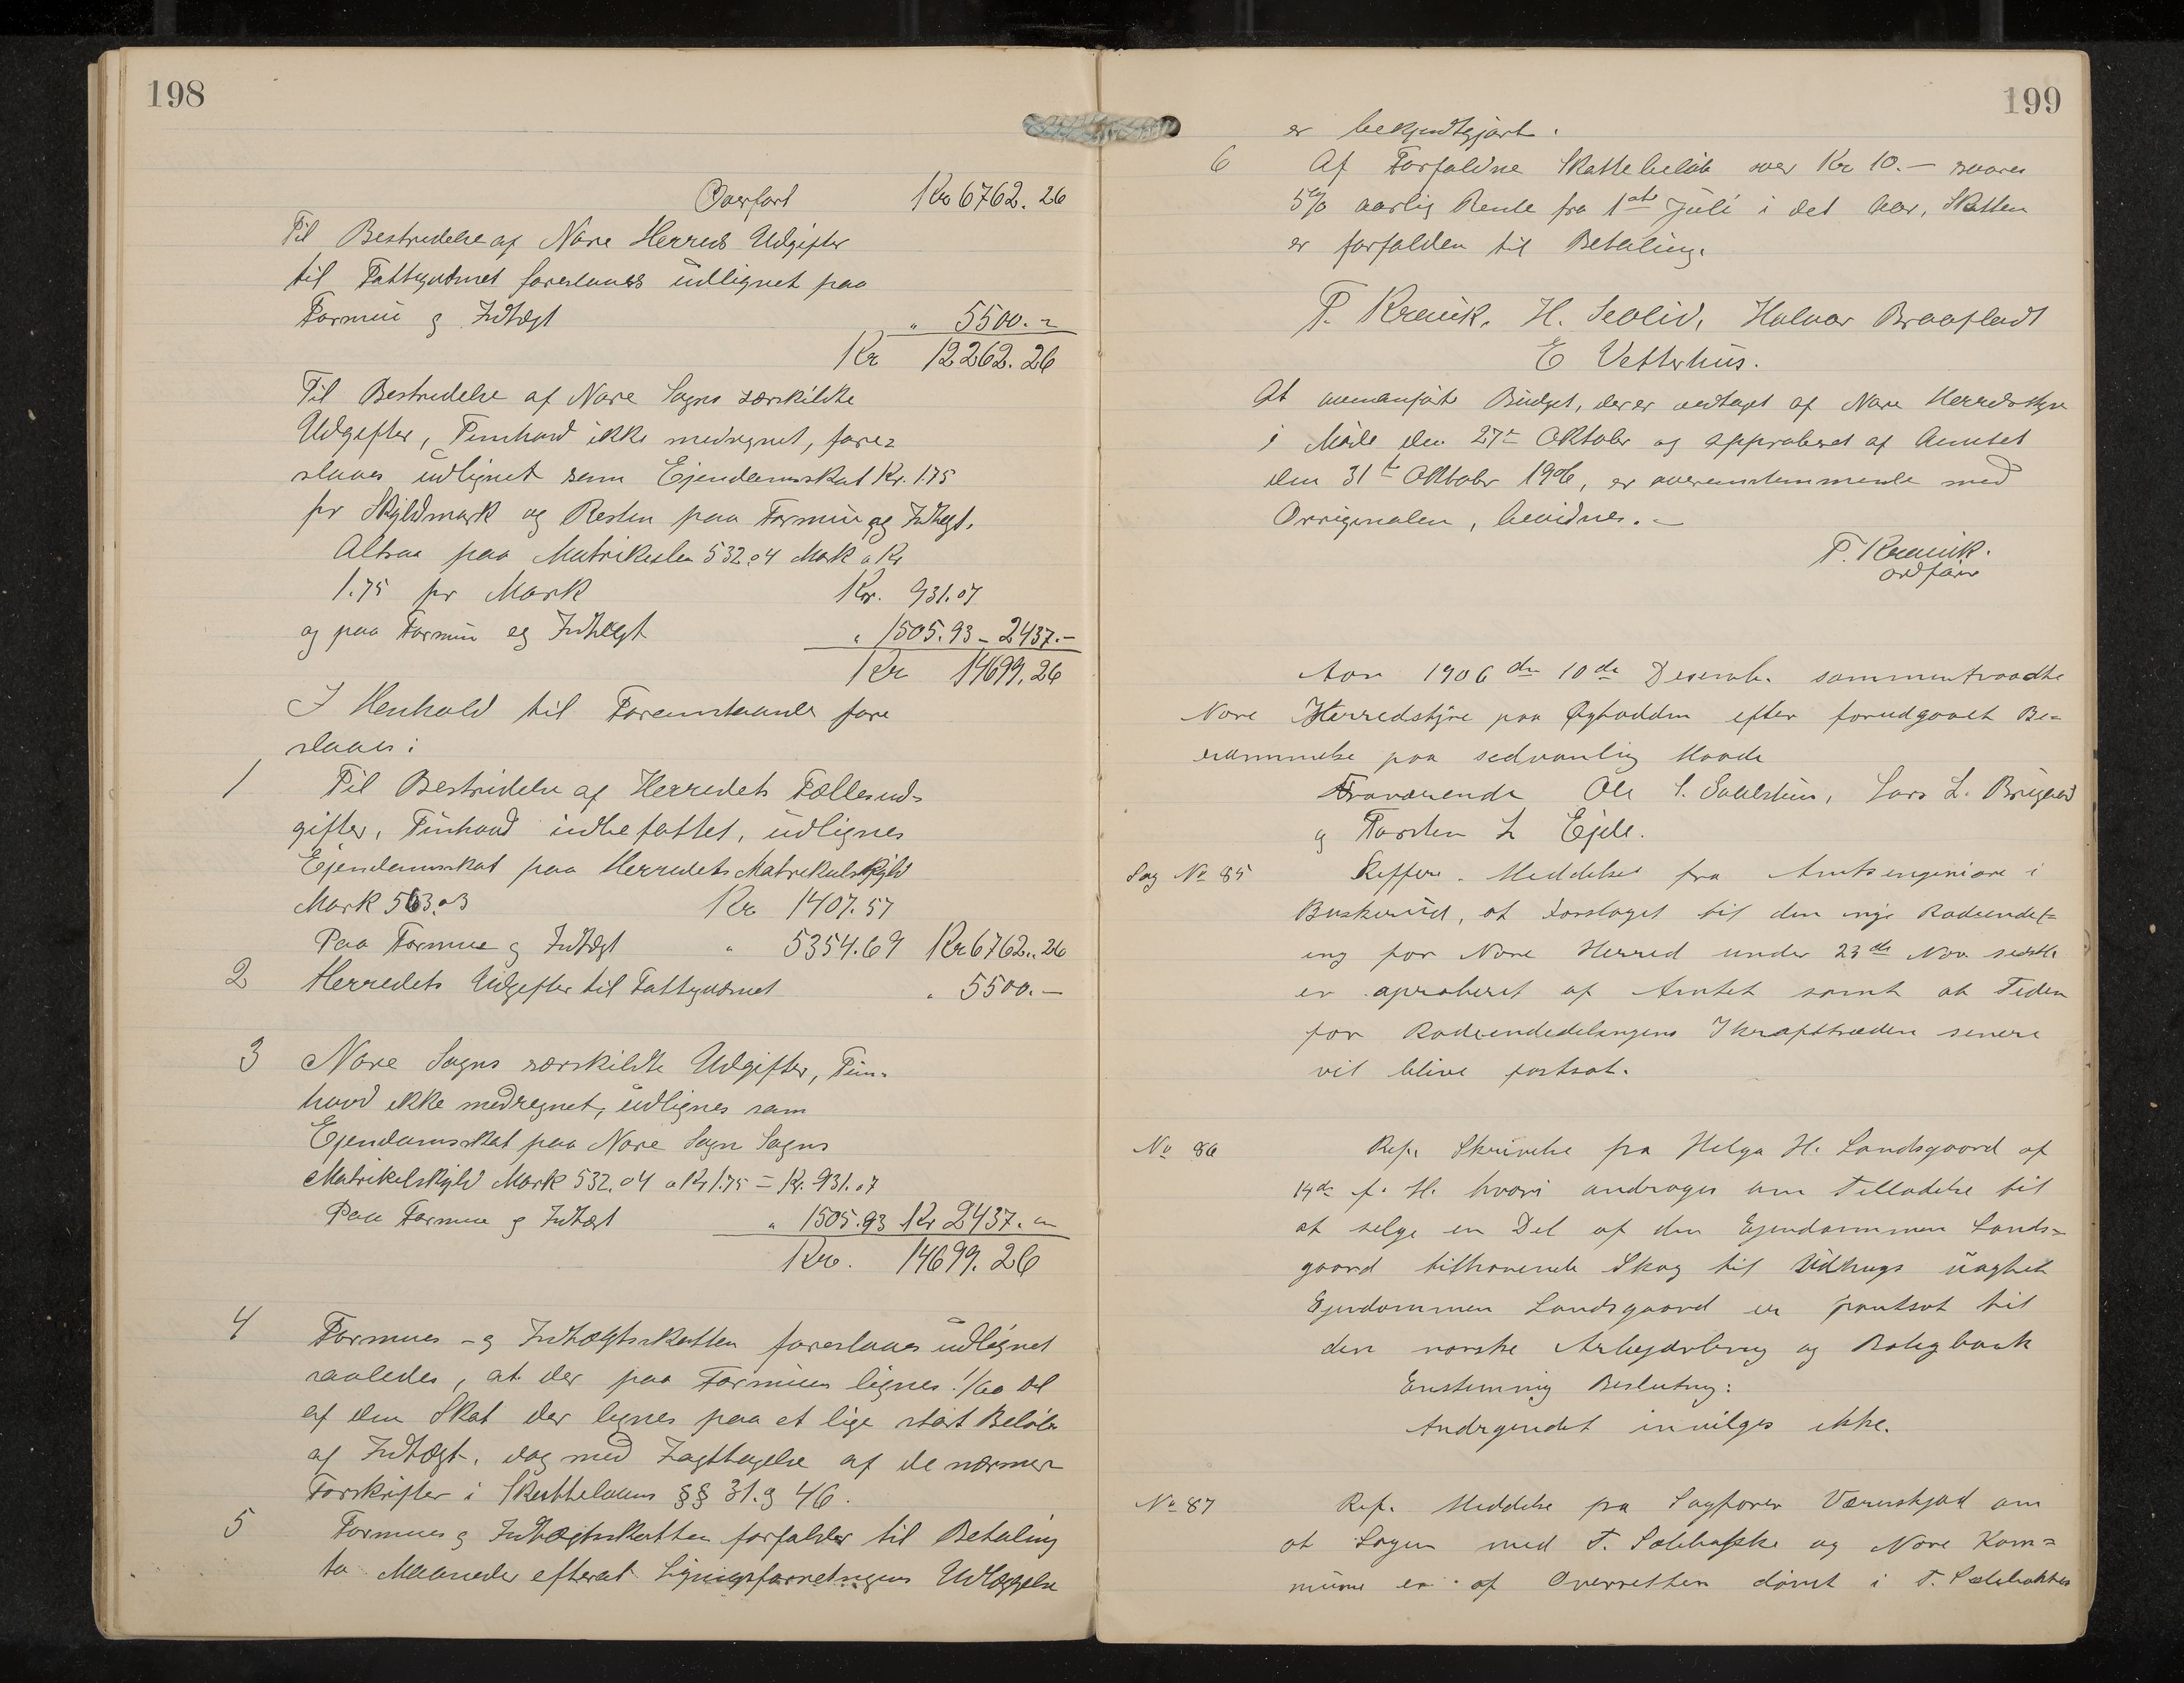 198
Overført Kr 6762. 26
Til Bestridelse af Nore Herreds Udgifter
til Fattigvæsnet foreslaaes udlignet paa
Formue og Indtægt " 5500. -
Kr 12262. 26
Til Bestridelse af Nore Sogns særskildte
Udgifter, Tunhovd ikke medregnet, fore=
slaaes udlignet som Ejendomsskat Kr. 1.75
pr Skyldmark og Resten paa Formue og Indtægt.
Altsaa paa Matrikelen 532.04 Mark a Kr
1.75 pr Mark Kr. 931.07
og paa Formue og Indtægt " 1505.93 - 2437.-
Kr 14699.26
I Henhold til Foranstaaende fore
slaaes:
1 Til Bestridelse af Herredets Fællesud=
gifter, Tunhovd indbefattet, udlignes
Ejendomsskat paa Herredets Matrikulskyld
Mark 563.03 Kr 1407.57
Paa Formue og Indtægt " 5354.69 Kr 6762..26
2 Herredets Udgifter til Fattigvæsnet " 5500.-
3 Nore Sogns særskildte Udgifter, Tun=
hovd ikke medregnet, udlignes som
Ejendomsskat paa Nore Sogn Sogns
Matrikelskyld Mark 532.04 a Kr 1.75 = Kr. 931.07
Paa Formue og Indtægt " 1505.93 Kr 2437. -
Kr. 14699. 26
4 Formues - og Indtægtsskatten foreslaaes udlignet
saaledes, at der paa Formuen lignes 1/60 Del
af den Skat der lignes paa et lige stort Beløb
af Indtægt, dog med Iagttagelse af de nærmere
Forskrifter i Skattelovens §§ 31. og 46.
5 Formues og Indtægtsskatten forfalder til Betaling
to Maaneder efterat Ligningsforretningens Udlæggelse
199
er bekjendtgjort.
6 Af Forfaldne Skattebeløb over Kr 10.- svares
5% aarlig Rente fra 1ste Juli i det Aar, Skatten
er forfalden til Betaling.
T. Kravik. H. Seolid, Halvor Braafladt
E Vetterhus.
At ovenanførte Budget, der er vedtaget af Nore Herredstyre
i Møde den 27de Oktober og approberet af Amtet
den 31te Oktober 1906, er overensstemmende med
Orriginalen, bevidnes. -
T. Kravik.
ordfører
Aar 1906 den 10de Decemb. sammentraadte
Nore Herredstyre paa Øygardden efter forudgaaet Be=
rammelse paa sedvanlig Maade
Fraværende Ole S. Lars L.
og Torsten L Ejde.
Sag No 85 Reffere. Meddelse fra Amtsingeniøre i
Buskerud, at Forslaget til den nye Rodeindel=
ing for Nore Herred under 23de Nov sidstl.
er aproberet af Amtet samt at Tiden
for Rodeinddelingens Ikraftræden senere
vil blive fastsat.
No 86 Ref. Skrivelse fra Helga H. Landsgaard af
14de f. M. hvori andrages om Tilladelse til
at selge en Del af den Ejendommen Lands=
gaard tilhørende Skog til Udhugs uagtet
Ejendommen Landsgaard er pantsat til
den norske Arbejderbrug og Boligbank
Enstemmig Beslutning:
Andragendet invilges ikke.
No 87 Ref. Meddelse fra Sagfører Værnskjød om
at Sagen med T. og Nore Kom=
mune er af Overretten dømt i T.